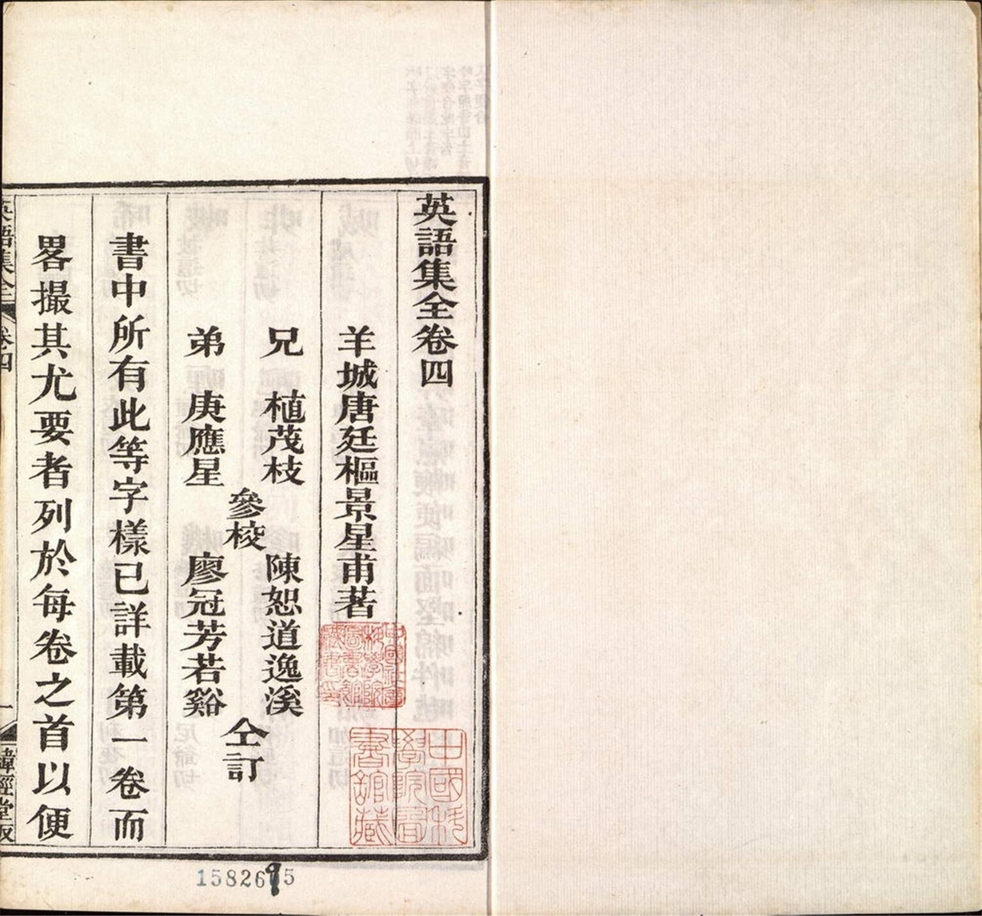 英語集全卷四
羊城唐廷樞景星甫著
兄 植茂枝
弟 庚應星
參校
陳恕道逸溪
廖冠芳若谿
仝訂
書中所有此等字樣已詳載第一卷而
畧撮其尤要者列於每卷之首以便
英語集全 卷四 一 緯經堂板
中國科學院圖書館藏
1582695